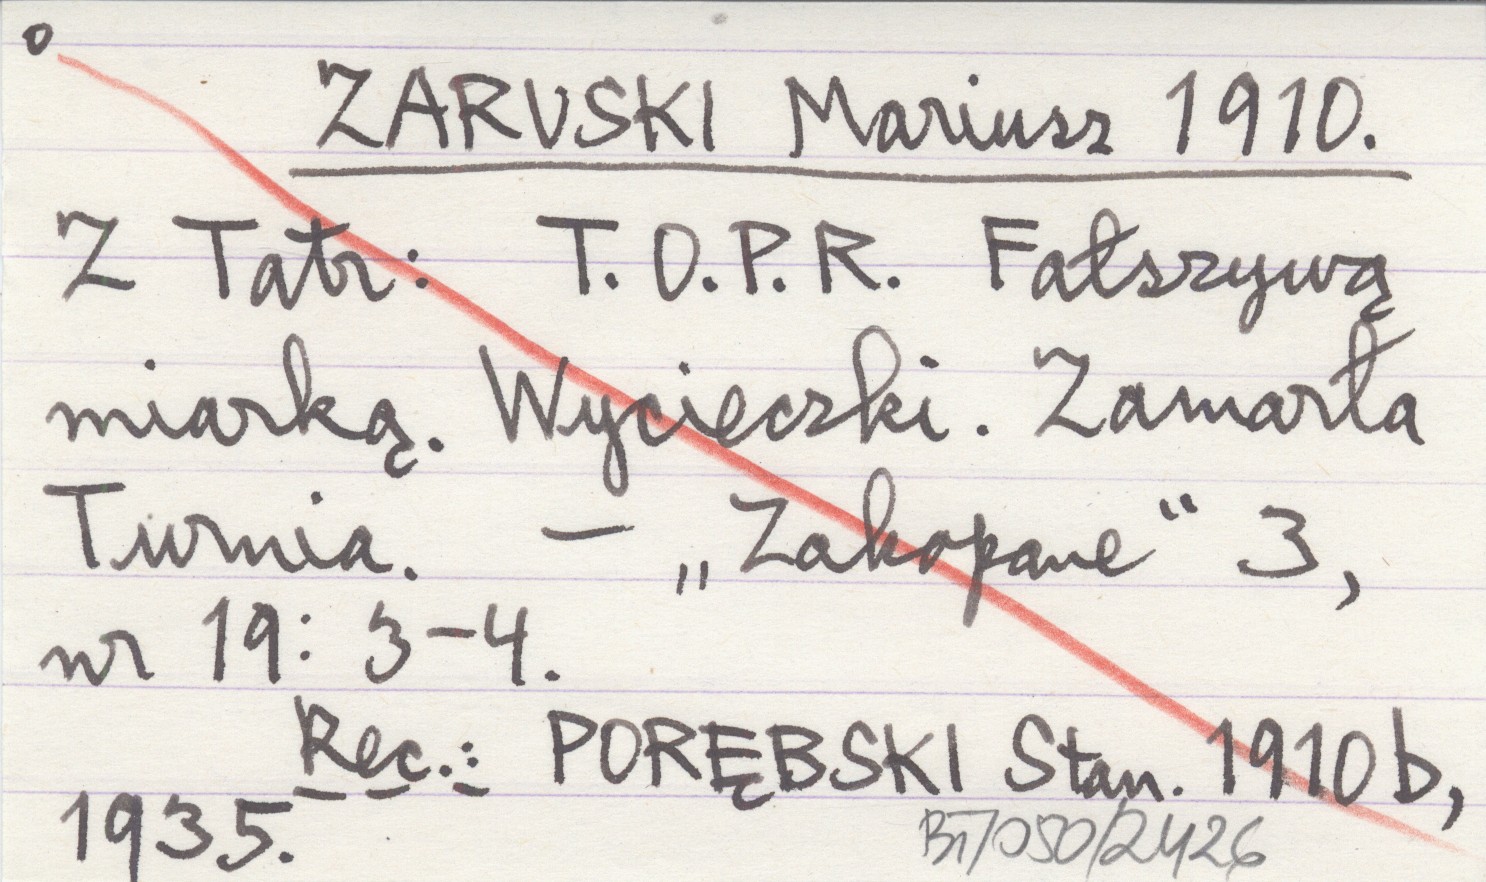 o
ZARUSKI Mariusz 1910.
Z Tatr: T.O.P.R. Fałszywą
miarką. Wycieczki. Zamarła
Turnia. – „Zakopane“ 3,
nr 19: 3–4.
Rec.: PORĘBSKI Stan. 1910b,
1935.
BT/050/2426